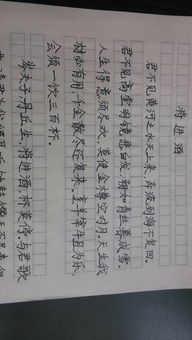 将进酒
君不见黄河之水天上来,奔流到海不复回。
君不见高堂明镜悲白发,朝如青丝暮成雪。
人生得意须尽欢,莫使金樽空对月。天生我
材必有用,千金散尽还复来。烹羊宰牛且为乐,
会须一饮三百杯。
岑夫子,丹丘生,将进酒,杯莫停。与君歌